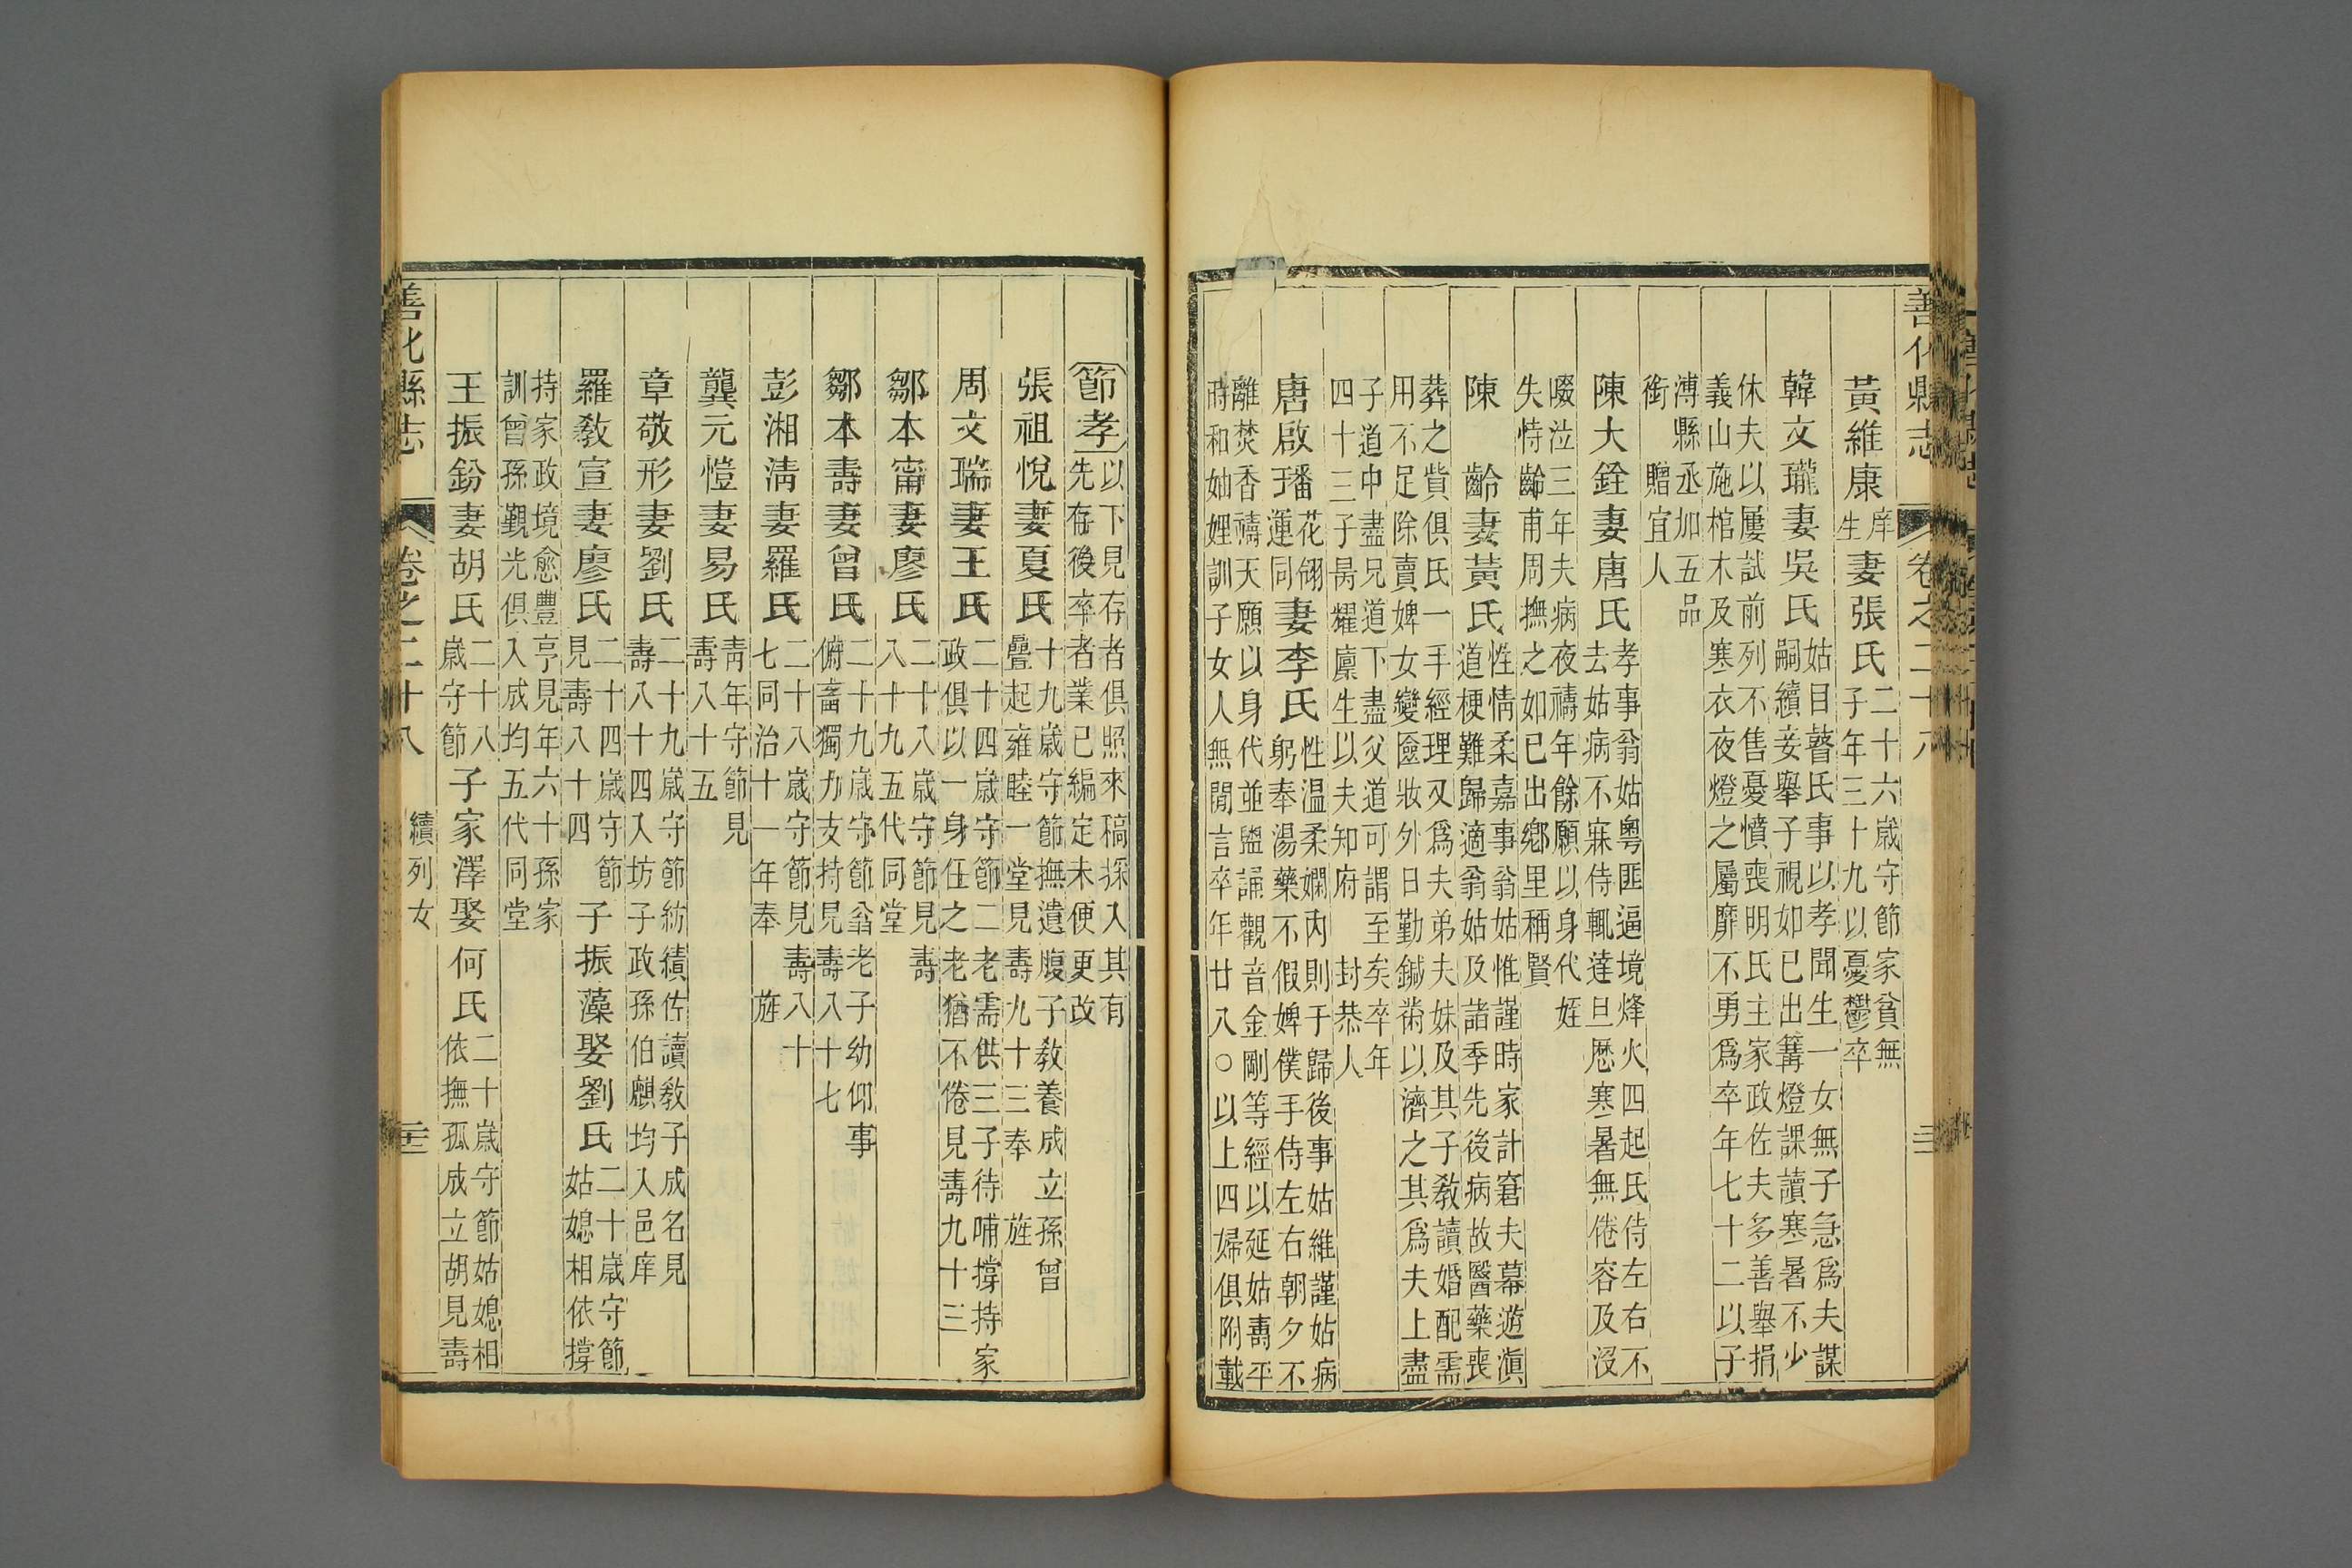 善化縣志 卷之二十八
黃維康庠生妻張氏二十六歲守節家貧無子年三十九以憂鬱卒
韓文瓏妻吳氏姑目瞽氏事以孝聞生一女無子急爲夫謀嗣續妾舉子視如已出篝燈課讀寒暑不少
休夫以屢試前列不售憂憤喪明氏主家政佐夫多善舉捐義山施棺木及寒衣夜燈之屬靡不勇爲卒年七十二以子
溥縣丞加五品銜贈宜人
陳大銓妻唐氏孝事翁姑粵匪逼境烽火四起氏侍左右不去姑病不寐侍輒達旦歷寒暑無倦容及沒
啜泣三年夫病夜禱年餘願以身代姪失恃齡甫周撫之如已出鄉里稱賢
陳齡妻黃氏性情柔嘉事翁姑惟謹時家計窘夫幕遊滇道梗難歸適翁姑及諸季先後病故醫藥喪
葬之貲俱氏一手經理又爲夫弟夫妹及其子教讀婚配需用不足除賣婢女變匳妝外日勤鍼黹以濟之其爲夫上盡
子道中盡兄道下盡父道可謂至矣卒年四十三子昺耀廩生以夫知府封恭人
唐啟璠花翎運同妻李氏性溫柔嫻內則于歸後事姑維謹姑病躬奉湯藥不假婢僕手侍左右朝夕不
離焚香禱天願以身代並盥誦觀音金剛等經以延姑壽平時和妯娌訓子女人無閒言卒年廿八○以上四婦俱附載
節孝以下見存者俱照來稿採入其有先存後卒者業已編定未便更改
張祖悅妻夏氏十九歲守節撫遺腹子敎養成立孫曾疊起雍睦一堂見壽九十三奉旌
周文瑞妻王氏二十四歲守節二老需供三子待哺撐持家政俱以一身任之老猶不倦見壽九十三
鄒本甯妻廖氏二十八歲守節見壽八十九五代同堂
鄒本壽妻曾氏二十九歲守節翁老子幼仰事俯畜獨力支持見壽八十七
彭湘淸妻羅氏二十八歲守節見壽八十七同治十一年奉旌
龔元愷妻易氏靑年守節見壽八十五
章敬形妻劉氏二十九歲守節紡績佐讀敎子成名見壽八十四入坊子政孫伯麒均入邑庠
羅敎宣妻廖氏二十四歲守節見壽八十四子振藻娶劉氏二十歲守節姑媳相依撐
持家政境愈豐亨見年六十孫家訓曾孫覲光俱入成均五代同堂
王振鈖妻胡氏二十八歲守節子家澤娶何氏二十歲守節姑媳相依撫孤成立胡見壽
善化縣志 卷之二十八 續列女